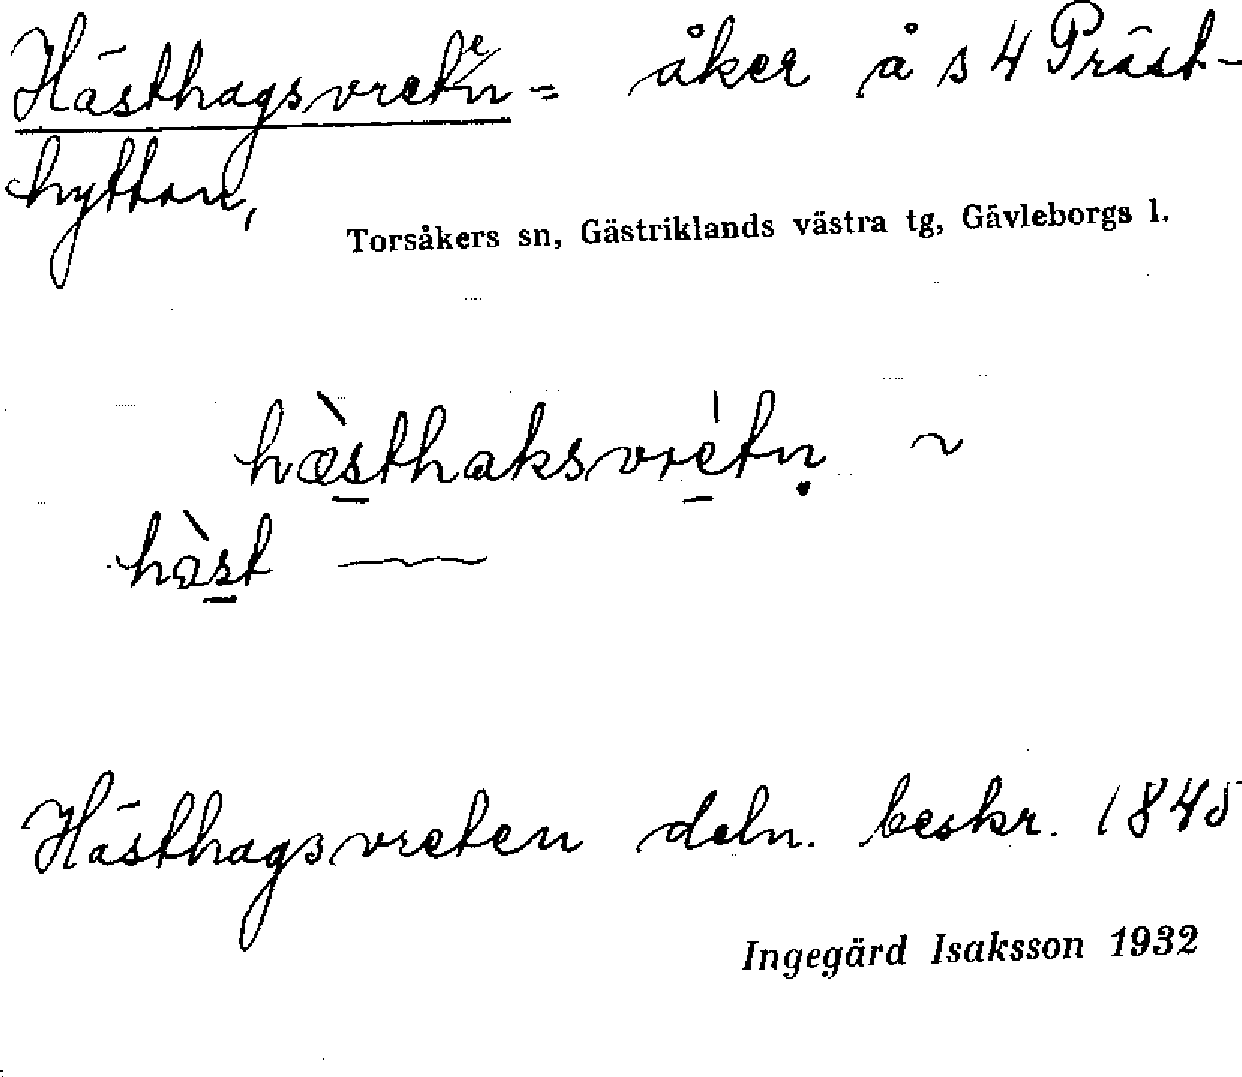 Hästhagsvreten = åker å s 4 Präst-
hyttan,
Torsåkers sn, Gästriklands västra tg, Gävleborgs l.
hæ̀sthaksvrétṇ ~
hàst ⁓
Hästhagsvreten deln. beskr. 1845
Ingegärd Isaksson 1932